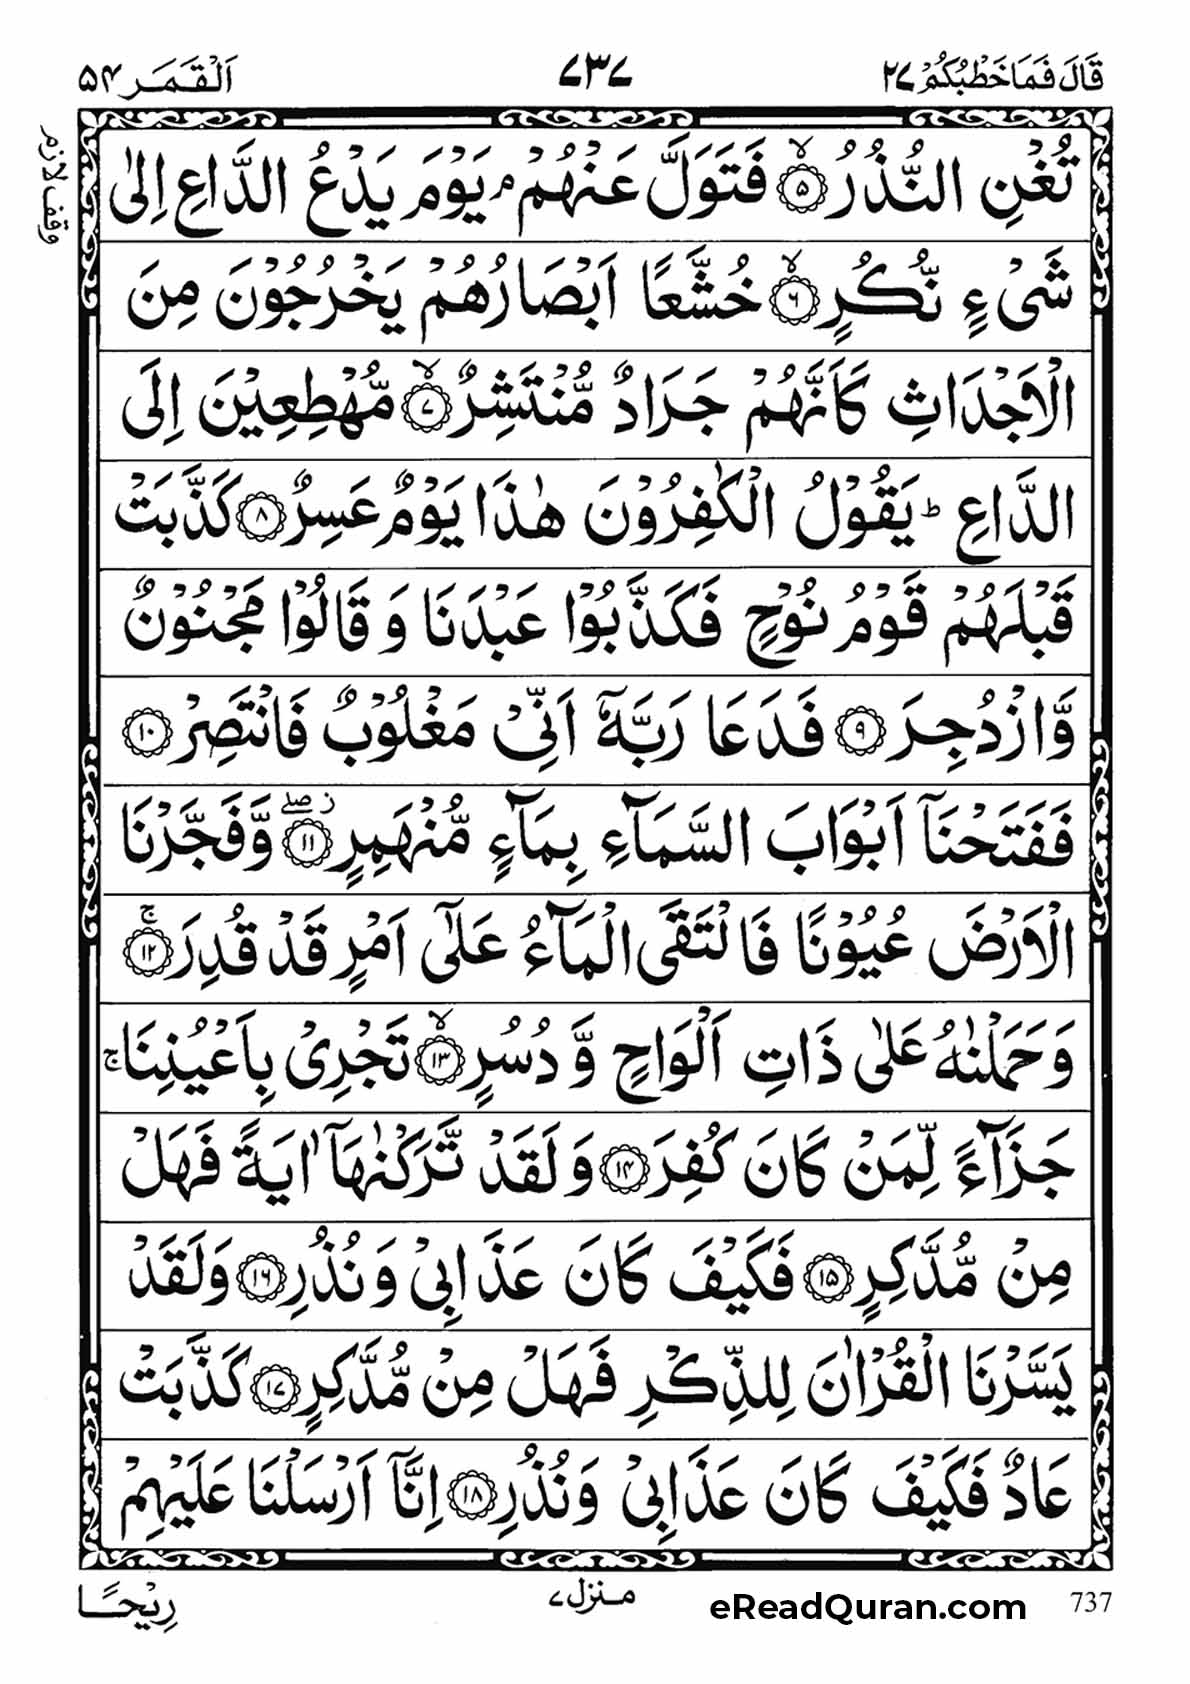 قَالَ فَمَا خَطْبُكُمْ ۲۷ ۷۳۷ اَلْقَمَر ۵۴
وقف لازم
تُغْنِ النُّذُرُ ۙ﴿۵﴾ فَتَوَلَّ عَنْهُمْ ۘ يَوْمَ يَدْعُ الدَّاعِ اِلٰى
شَىْءٍ نُّكُرٍ ۙ﴿۶﴾ خُشَّعًا اَبْصَارُهُمْ يَخْرُجُوْنَ مِنَ
الْاَجْدَاثِ كَاَنَّهُمْ جَرَادٌ مُّنْتَشِرٌ ۙ﴿۷﴾ مُّهْطِعِيْنَ اِلَى
الدَّاعِ ؕ يَقُوْلُ الْكٰفِرُوْنَ هٰذَا يَوْمٌ عَسِرٌ ﴿۸﴾ كَذَّبَتْ
قَبْلَهُمْ قَوْمُ نُوْحٍ فَكَذَّبُوْا عَبْدَنَا وَ قَالُوْا مَجْنُوْنٌ
وَّازْدُجِرَ ﴿۹﴾ فَدَعَا رَبَّهٗۤ اَنِّىْ مَغْلُوْبٌ فَانْتَصِرْ ﴿۱۰﴾
فَفَتَحْنَاۤ اَبْوَابَ السَّمَآءِ بِمَآءٍ مُّنْهَمِرٍ ز صلے ﴿۱۱﴾ وَّفَجَّرْنَا
الْاَرْضَ عُيُوْنًا فَالْتَقَى الْمَآءُ عَلٰٓى اَمْرٍ قَدْ قُدِرَ ۚ﴿۱۲﴾
وَحَمَلْنٰهُ عَلٰى ذَاتِ اَلْوَاحٍ وَّ دُسُرٍ ۙ﴿۱۳﴾ تَجْرِىْ بِاَعْيُنِنَا ۚ
جَزَآءً لِّمَنْ كَانَ كُفِرَ ﴿۱۴﴾ وَلَقَدْ تَّرَكْنٰهَاۤ اٰيَةً فَهَلْ
مِنْ مُّدَّكِرٍ ﴿۱۵﴾ فَكَيْفَ كَانَ عَذَابِىْ وَنُذُرِ ﴿۱۶﴾ وَلَقَدْ
يَسَّرْنَا الْقُرْاٰنَ لِلذِّكْرِ فَهَلْ مِنْ مُّدَّكِرٍ ﴿۱۷﴾ كَذَّبَتْ
عَادٌ فَكَيْفَ كَانَ عَذَابِىْ وَنُذُرِ ﴿۱۸﴾ اِنَّاۤ اَرْسَلْنَا عَلَيْهِمْ
رِيْحًا
منزل ۷
eReadQuran.com
737